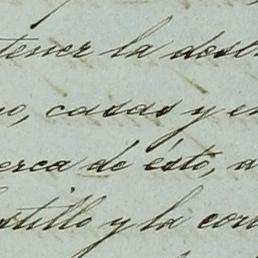 tener la dost
o, casas y en
erca de ésto, a
astillo y la cor